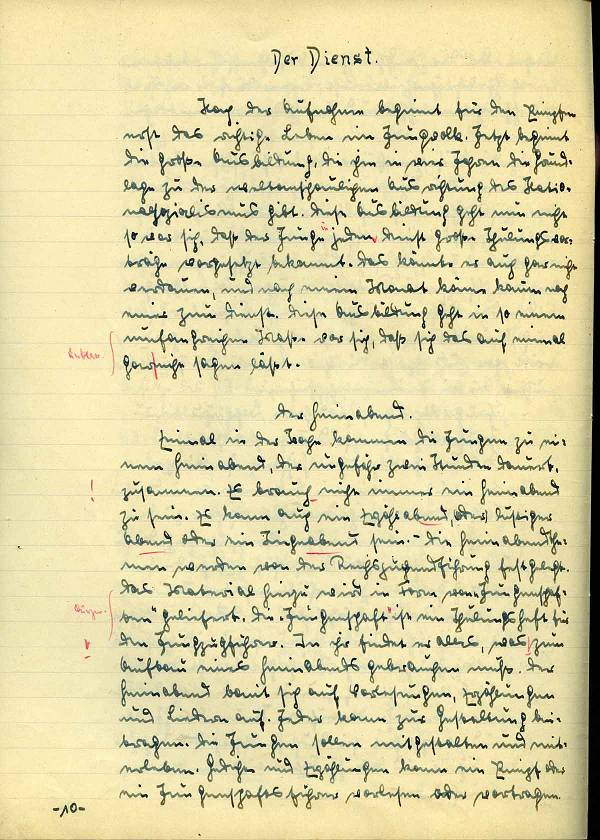 Der Dienst.
Nach der Aufnahme beginnt für den Pimpfen
erst das richtige Leben im Jungvolk. Jetzt beginnt
die große Ausbildung, die ihm in vier Jahren die
lage zu der weltanschaulichen Ausrichtung des Natio-
nalsozialismus gibt. Diese Ausbildung geht nun nicht
so vor sich, daß der Junge in jedem Dienst große Schulungsvor-
träge vorgesetzt bekommt. Das könnte er auch gar nicht
verdauen, und nach einem Monat käme kaum noch
einer zum Dienst. Diese Ausbildung geht in so einem
umfangreichen Maße vor sich, daß sich das auf einmal
garnicht sagen läßt.
Der Heimabend.
Einmal in der Woche kommen die Jungen zu ei-
nem Heimabend, der ungefähr zwei Stunden dauert,
zusammen. Es brauch nicht immer ein Heimabend
! zu sein. Es kann auch ein abend, oder lustiger
abend oder ein Singeabend sein. - Die Heimabendthe-
men werden von der Reichsjugendführung festgelegt.
Das Material hierzu wird in Form von "Jungenschaf-
ten" geliefert. Die "Jungenschaft" ist ein Schulungsheft für
den Jungzugführer. In ihr findet er alles, was zum
Aufbau eines Heimabends gebrauchen muß. Der
Heimabend baut sich auf Vorlesungen, Erzählungen
und Liedern auf. Jeder kann zur Gestaltung bei-
tragen. Die Jungen sollen mitgestalten und mit-
erleben. Gedichte und Erzählungen kann ein Pimpf oder
ein Jungenschaftsführer vorlesen oder vortragen.
-10-